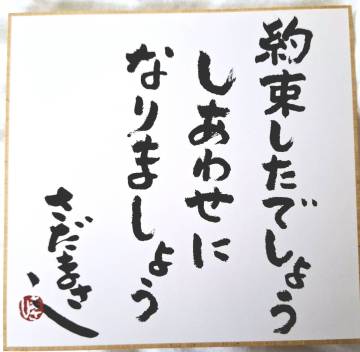 約束したでしょう
しあわせに
なりましょう
さだまさし